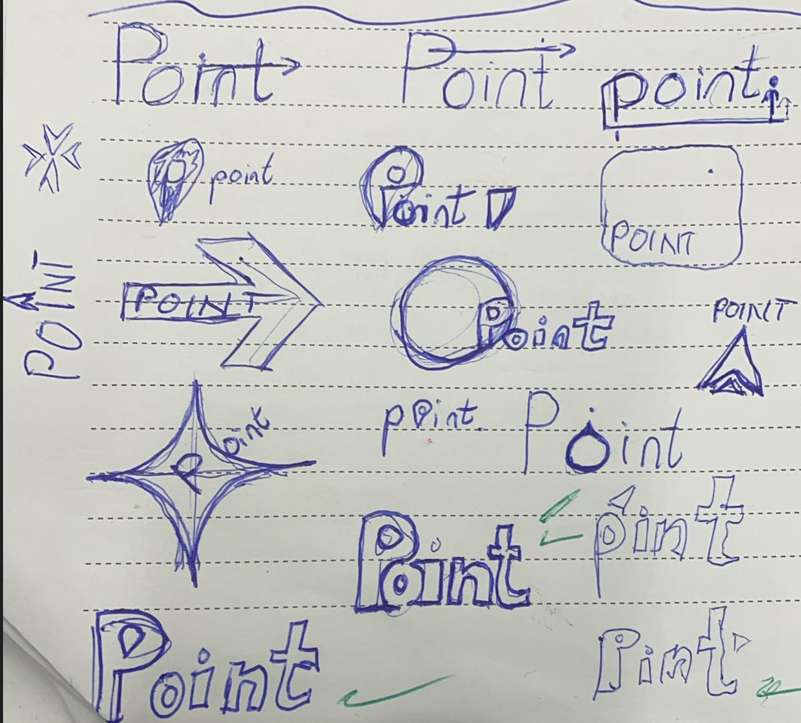 Point
Point
point
point
Point
POINT
POINT
POINT
Point
POINT
Point
point.
Point
Point
pint
Point
Pint